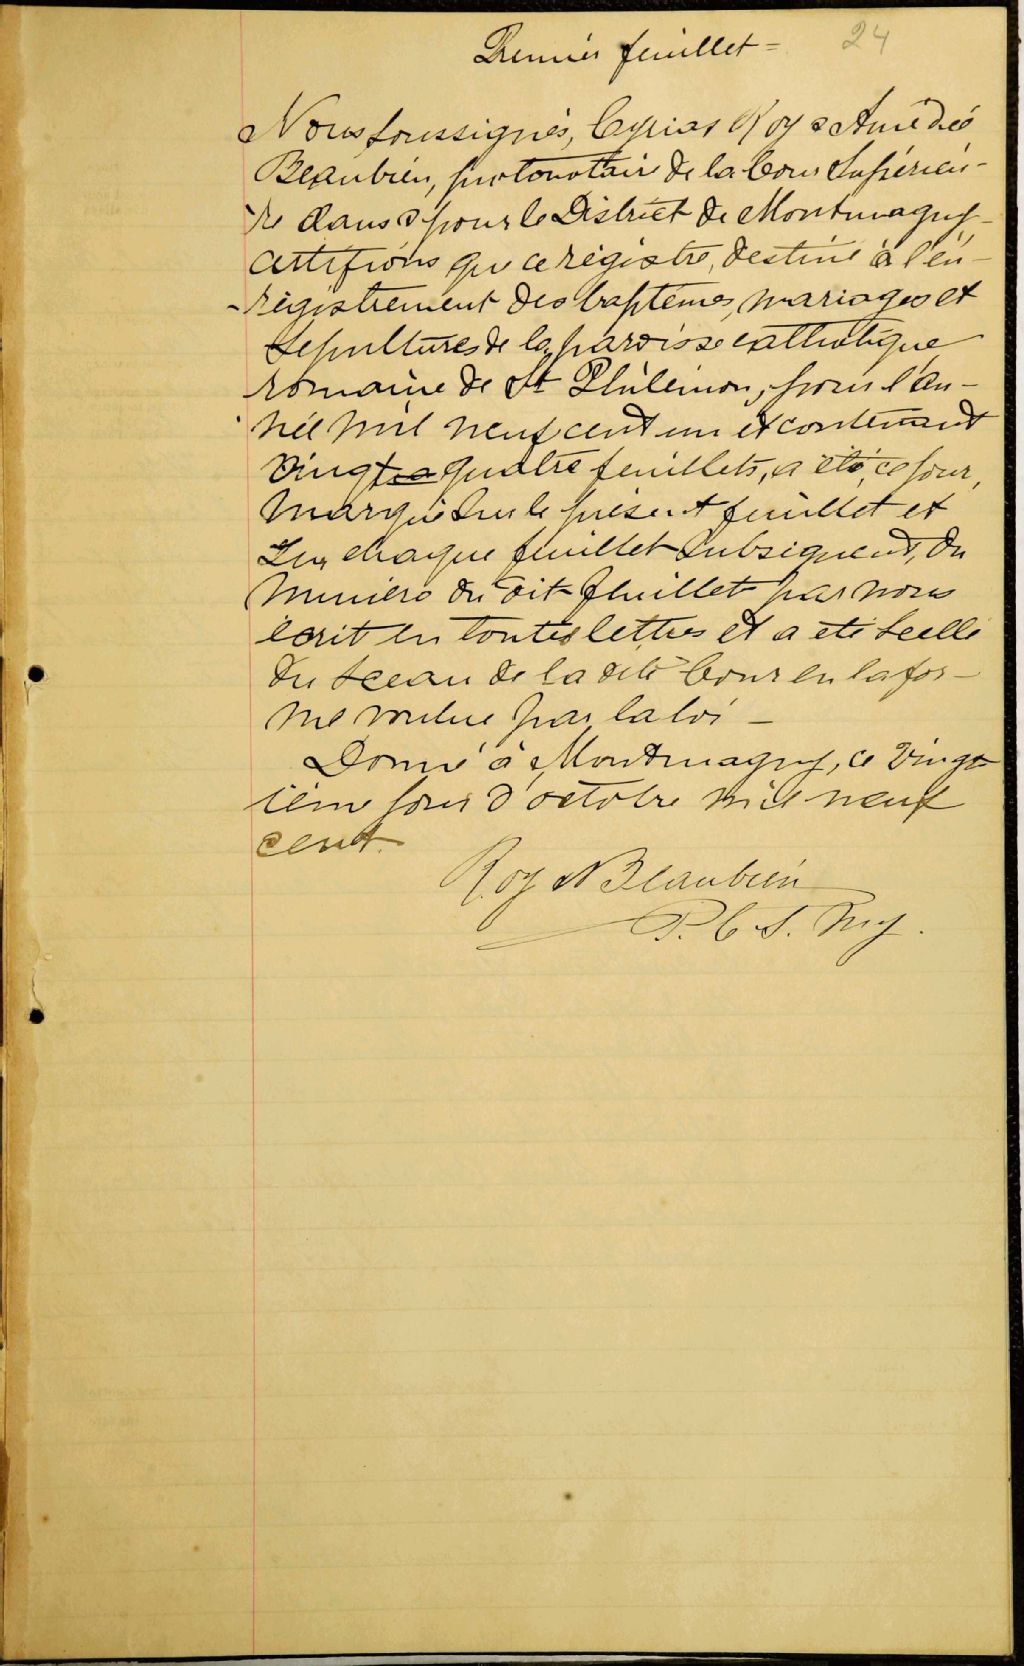 Premier feuillet = 24
Nous soussignés, Cyrias Roy & Amédée
Beaubien, protonotaire de la Cour Supérieu-
re dans & pour le District de Montmagny
certifions que ce régistre, destiné à l'en-
régistrement des baptêmes, mariages et
sépultures de la paroisse catholique
romaine de St Philémon, pour l'an-
née mil neuf cent un et contenant
vingt quatre feuillets, a été, ce jour,
marqué sur le présent feuillet et
sur chaque feuillet subséquent, du
numéro du dit feuillet par nous
écrit en toutes lettres et a été scellé
du sceau de la dite Cour en la for-
me voulue par la loi -
Donné à Montmagny, ce vingt
ième jour d'octobre mil neuf
cent.
Roy & Beaubien
P. C. S. Mgy.